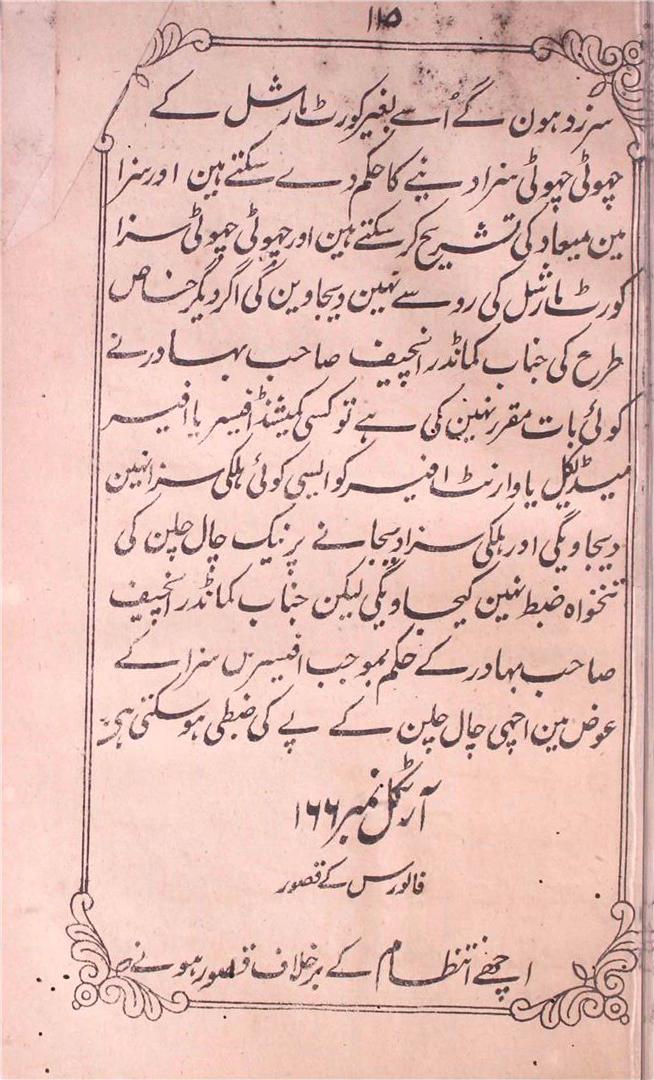 ۱۱۵
سرزد ہون گے اُسے بغیر کورٹ مارشل کے
چہوٹی چہوٹی سزا دینے کا حکم دے سکتے ہین اور سزا
مین میعاد کی تشریح کر سکتے ہین اور چہوٹی چہوٹی سزا
کورٹ مارشل کی رو سے نہین دیجاوین گی اگر دیگر خاص
طرح کی جناب کمانڈر انچیف صاحب بہادر نے
کوئی بات مقرر نہین کی ہے تو کسی کمیشنڈ افیسر یا افیسر
میڈیکل یا وارنٹ افیسر کو ایسی کوئی ہلکی سزا نہین
دیجاویگی اور ہلکی سزا دیجانے پر نیک چال چلن کی
تنخواہ ضبط نہین کیجاویگی لیکن جناب کمانڈر انچیف
صاحب بہادر کے حکم بموجب افیسر سزا کے
عوض مین اچہی چال چلن کے پے کی ضبطی ہو سکتی ہی
آرٹیکل نمبر ۱۶۶
فالورس کے قصور
اچھے انتظام کے برخلاف قصور ہونے